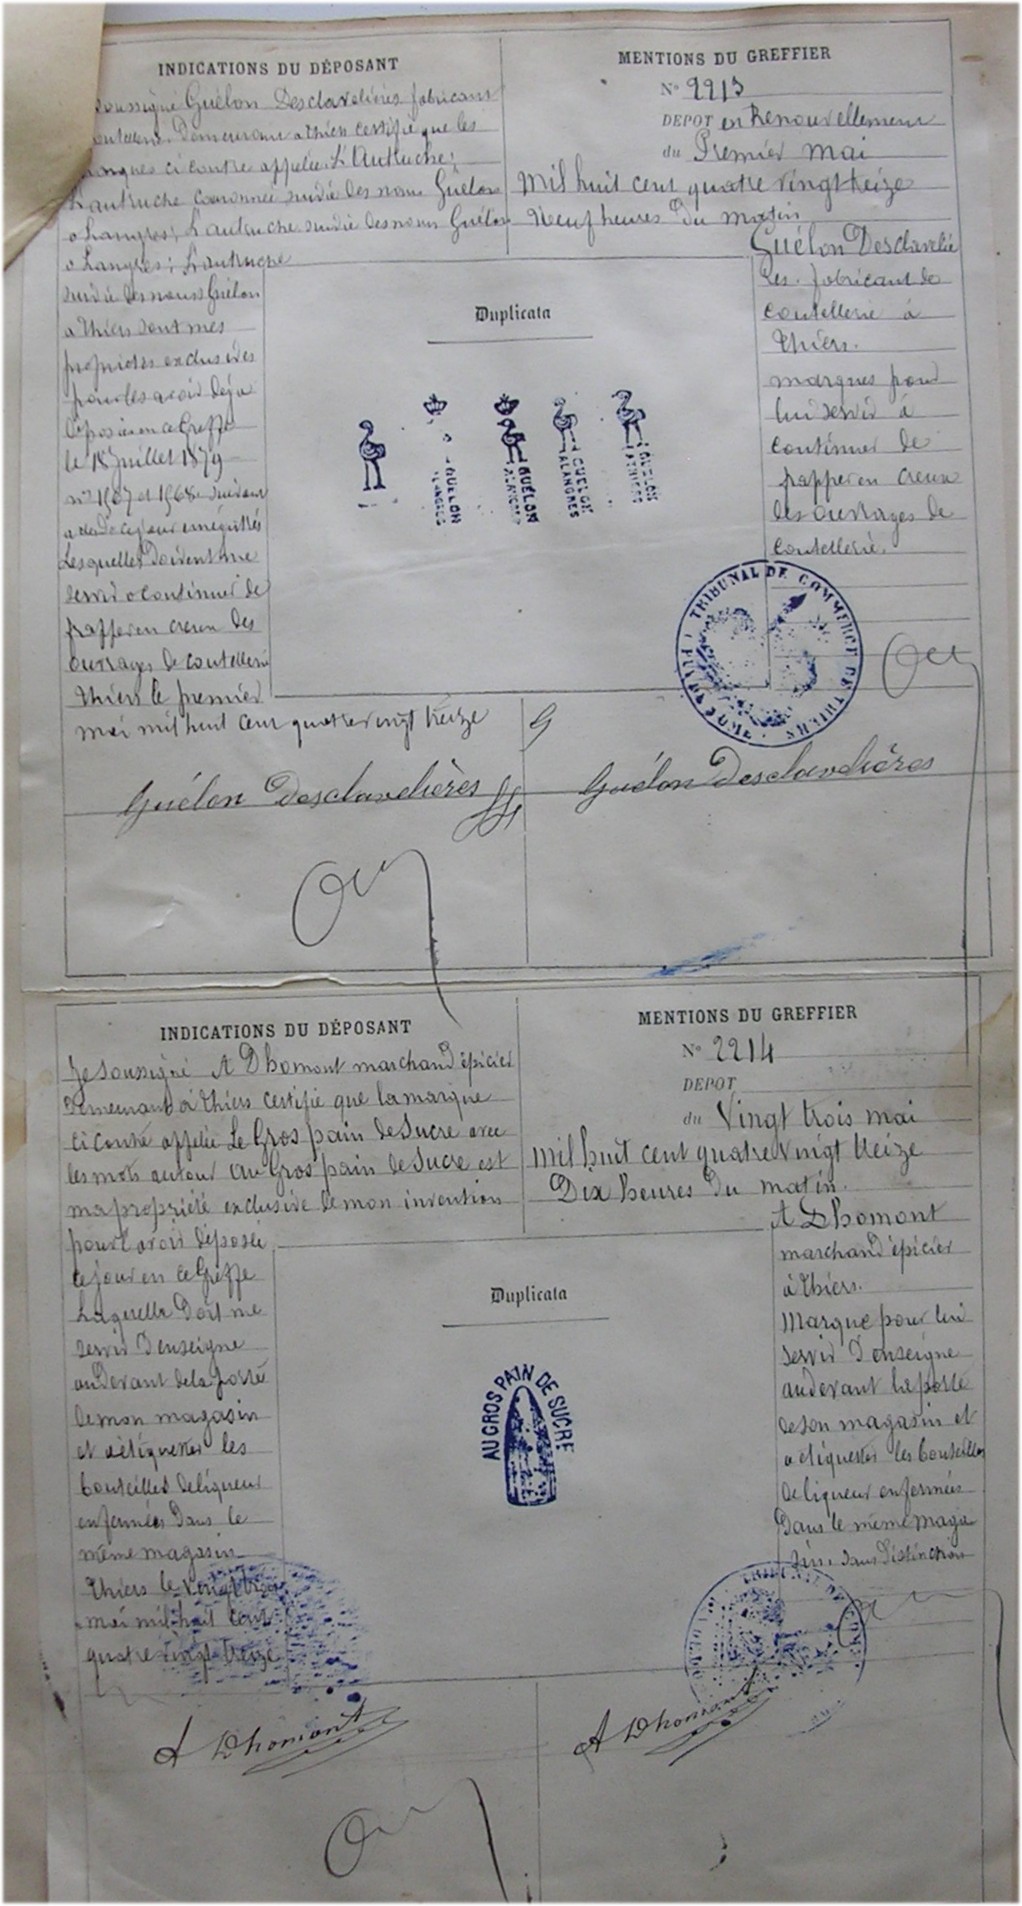 INDICATIONS DU DÉPOSANT
soussigné Guélon Desclavelières fabricant
Demeurant a thiers certifie que les
marques ci contre appelée L'Autruche;
L'autruche couronnée suivie des noms Guélon
a Langres; L'autruche suivie des noms Guélon
a Langres; L'autruche
suivie des noms Guélon
a thiers sont mes
propriétés exclusives
pour les avoir déja
déposées en ce Greffe
le 18 Juillet 1879
nos 1967 et 1968 suivant
Lesquelles doivent me
servir a continuer de
frapper en creux des
ouvrages de coutellerie
thiers le premier
mai mil huit cent quatre vingt treize
Guélon Desclavelières
MENTIONS DU GREFFIER
No 2213
DEPOT en Renouvellement
du Premier mai
Mil huit cent quatre vingt treize
Neuf heures du matin
Guélon Desclaveliè
res. fabricant de
coutellerie à
thiers.
marques pour
lui servir à
continuer de
frapper en creux
des ouvrages de
coutellerie.
Duplicata
GUELON
ALANGRES
GUÉLON
ALANGRES
GUELON
ALANGRES
GUELON
ATHIERS
TRIBUNAL DE COMMERCE DE THIERS
PUY DE DOME
Guélon Desclavelières
INDICATIONS DU DÉPOSANT
Je soussigné A Dhomont marchand épicier
Demeurant à thiers certifie que la marque
ci contre appelée Le Gros pain de Sucre avec
les mots autour Au Gros pain de Sucre est
ma propriété exclusive de mon invention
pour l'avoir déposée
ce jour en ce Greffe
Laquelle doit me
servir d'enseigne
au devant de la porte
de mon magasin
et à étiqueter les
bouteilles de liqueur
enfermées dans le
même magasin
thiers le vingt trois
mai mil huit cent
quatre vingt treize
A Dhomont
MENTIONS DU GREFFIER
No 2214
DEPOT
du Vingt trois mai
Mil huit cent quatre vingt treize
Dix heures du matin.
A Dhomont
marchand épicier
à thiers.
Marque pour lui
servir d'enseigne
au devant la porte
de son magasin et
a étiqueter les bouteilles
de liqueur enfermées
dans le même maga
sin. sans distinction
Duplicata
AU GROS PAIN DE SUCRE
A Dhomont